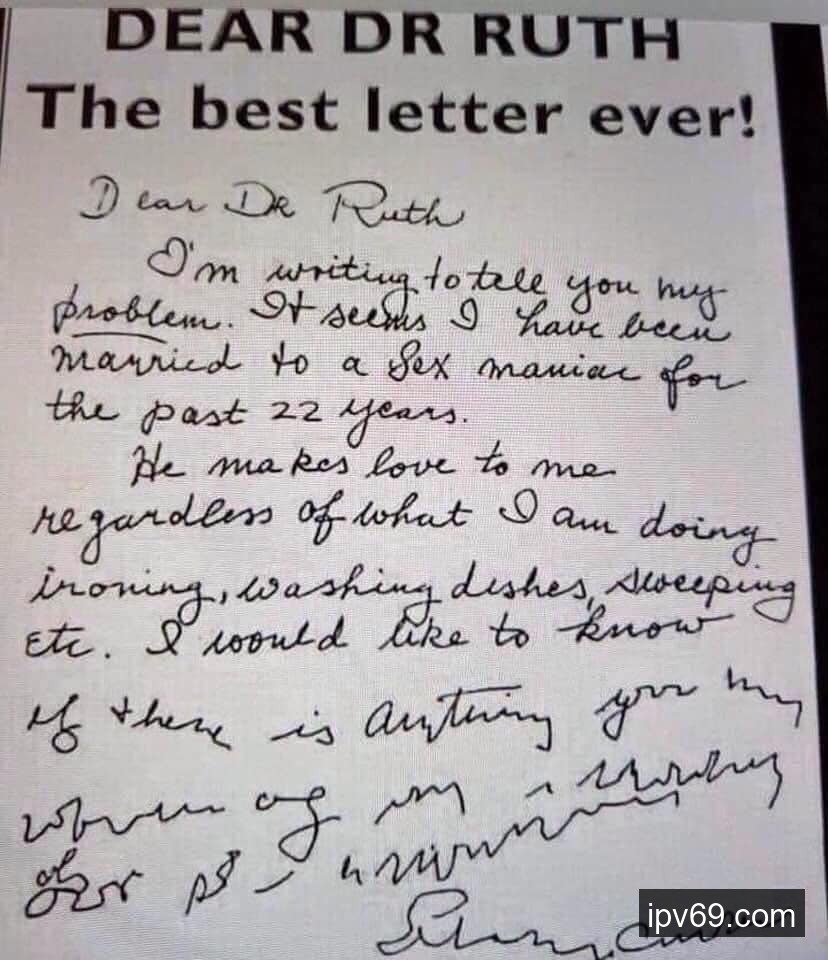 DEAR DR RUTH
The best letter ever!
Dear DR Ruth
I'm writing to tell you my
problem. It seems I have been
married to a Sex maniac for
the past 22 years.
He makes love to me
regardless of what I am doing
ironing, washing dishes, sweeping
etc. I would like to know
if there is anything you
ipv69.com